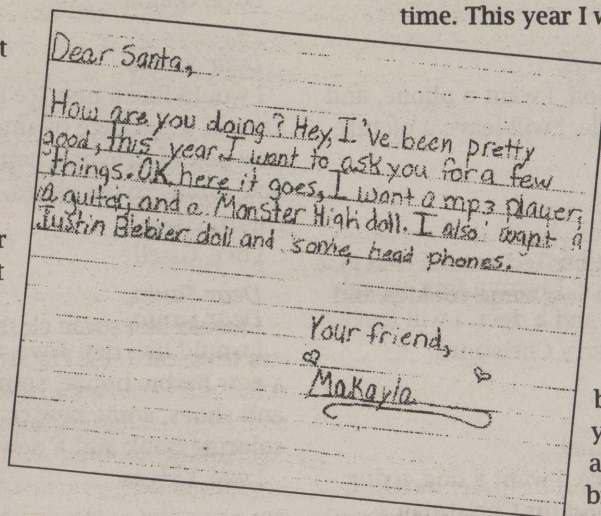 time. This year I w
t
Dear Santa,
How are you doing? Hey, I've been pretty
good, this year. I want to ask you for a few
things. OK here it goes, I want a mp3 player,
a guitar, and a Monster High doll. I also want a
Justin Bebier doll and some head phones.
r
t
Your friend,
Makayla
b
y
a
b